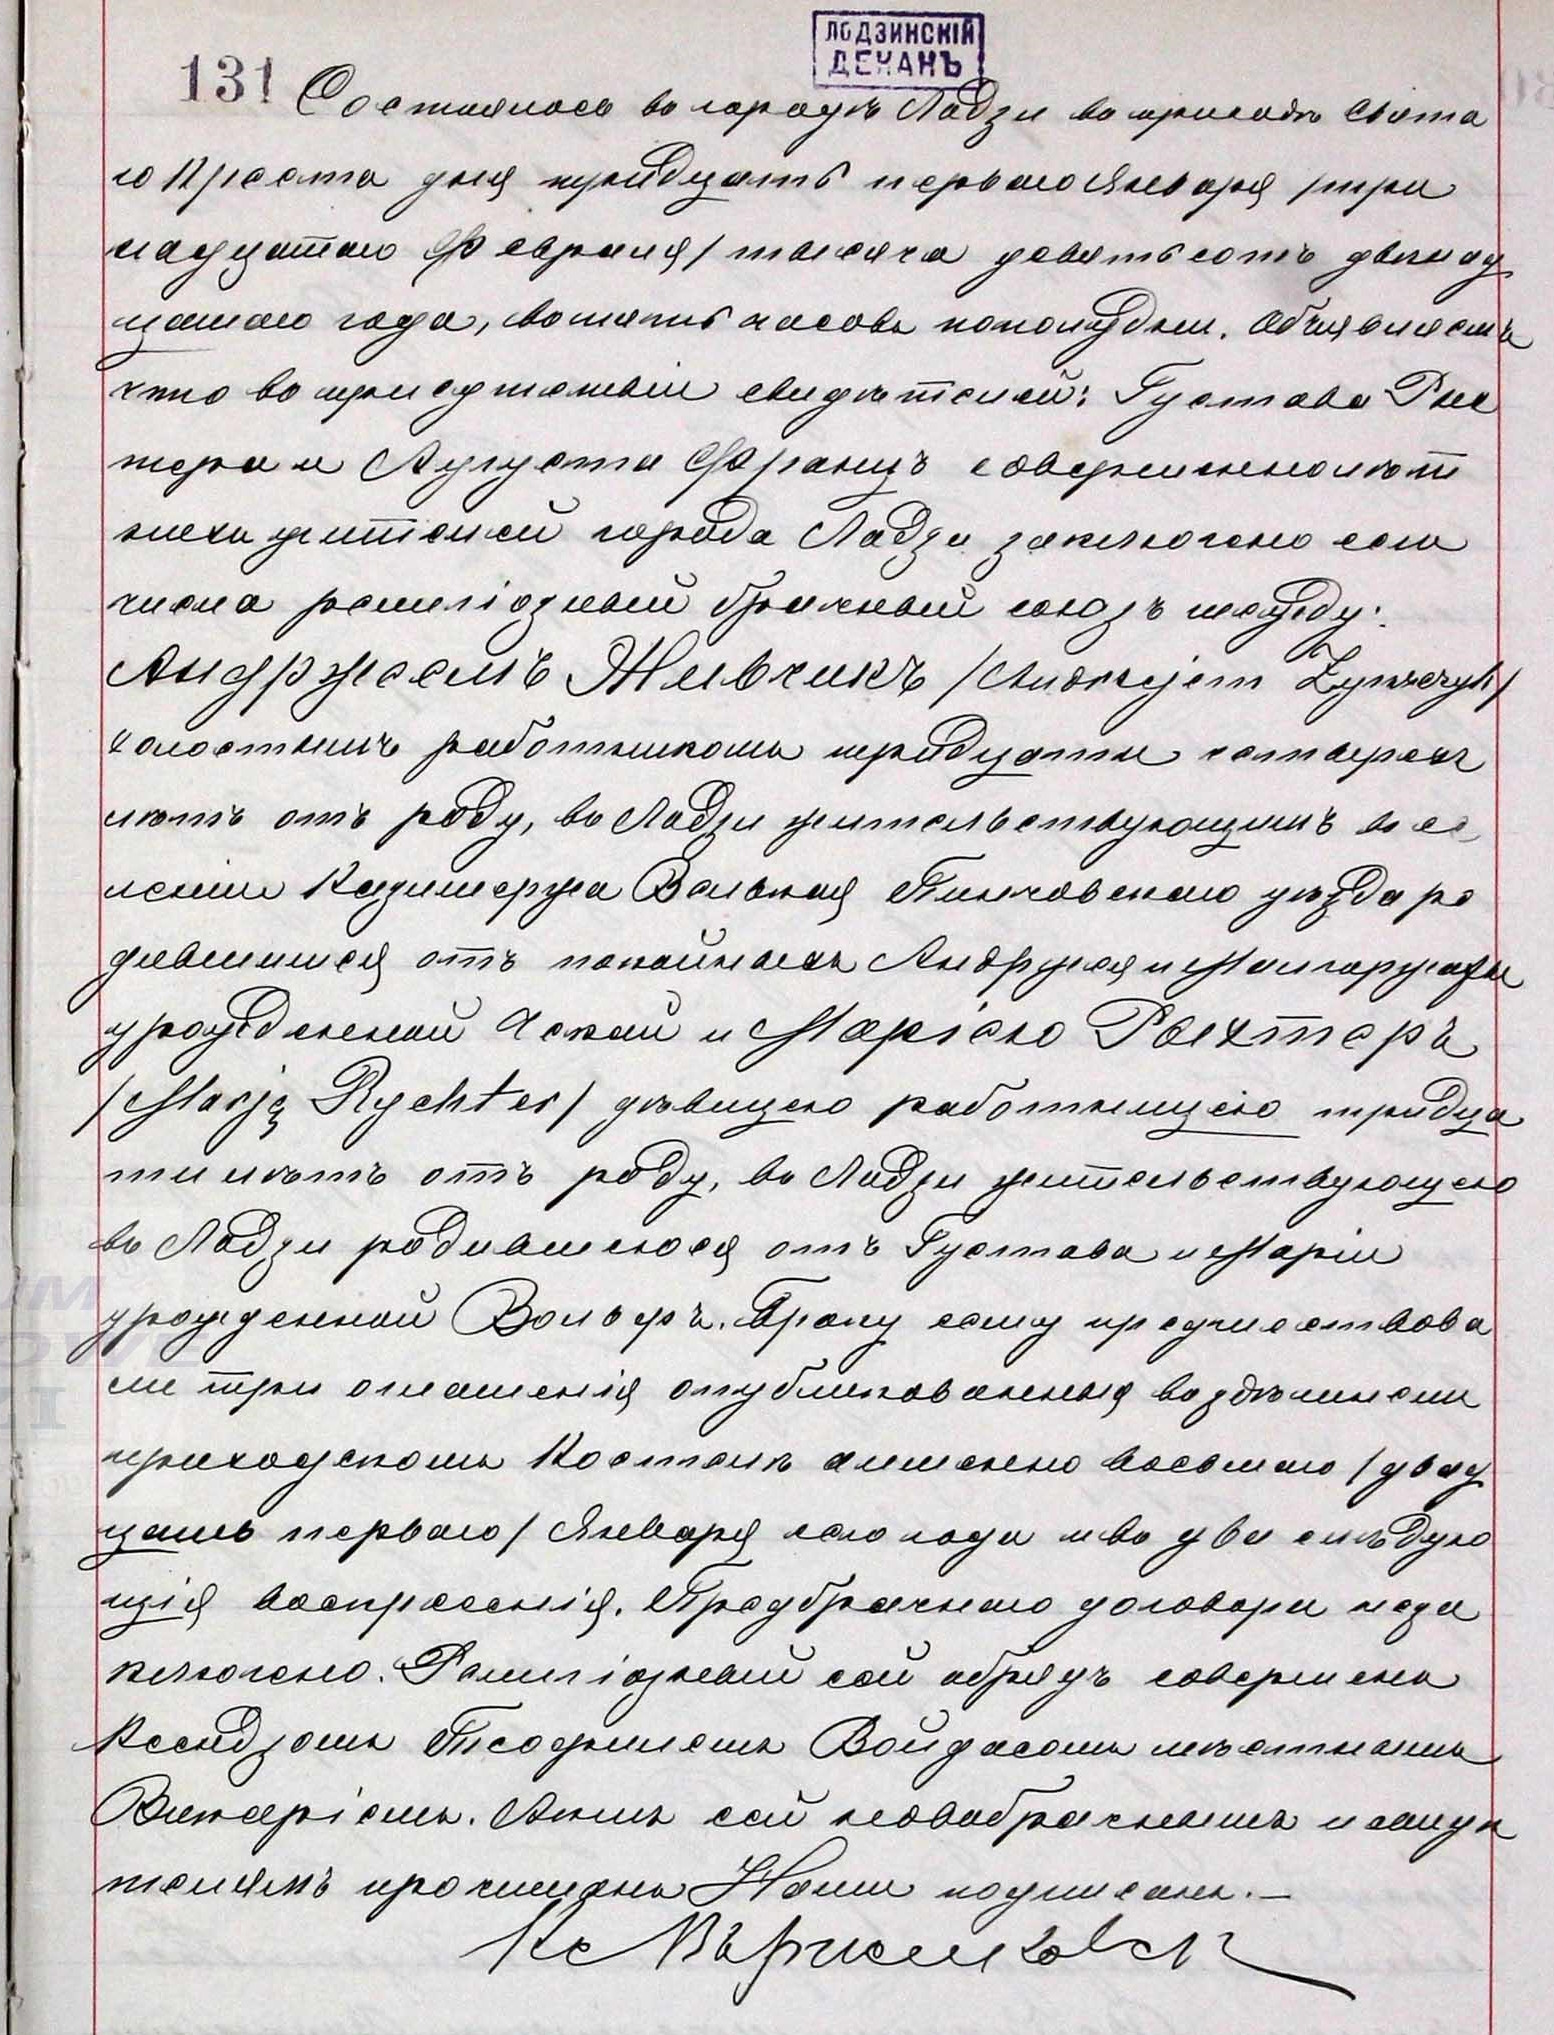 ЛОДЗИНСКІЙ
ДЕКАНЪ
131 Состоялось въ городѣ Лодзи въ приходѣ Свята
го Креста дня тридцать перваго Января /три
надцатаго Февраля/ тысяча девятьсотъ двѣнад
цатаго года, въ пять часовъ пополудни. Объявляемъ
что въ присутствіи свидѣтелей: Густава Рих
тера и Августа Францъ совершеннолѣт
нихъ жителей города Лодзи заключено сего
числа религіозный брачный союзъ между:
Андржеемъ Живчикъ /Andrzejem Żywczyk/
холостымъ работникомъ тридцати четырехъ
лѣтъ отъ роду, въ Лодзи жительствующимъ въ се
леніи Казимержа Велькая Пинчовскаго уѣзда ро
дившимся отъ покойныхъ Андржея и Малгаржаты
урожденной Чекай и Маріею Рыхтеръ
/Marją Rychter/ дѣвицею работницею тридца
ти лѣтъ отъ роду, въ Лодзи жительствующею
въ Лодзи родившеюся отъ Густава и Маріи
урожденной Вольфъ. Браку сему предшествова
ли три оглашенія опубликованныя въ здѣшнемъ
приходскомъ Костелѣ а именно восьмаго /двад
цать перваго/ Января сего года и въ два слѣдую
щія воскресенія. Предбрачнаго договора не за
ключено. Религіозный сей обрядъ совершенъ
Ксендзомъ Теофилемъ Войдасомъ мѣстнымъ
Викаріемъ. Актъ сей новобрачнымъ и свидѣ
телямъ прочитанъ Нами подписанъ.—
Кс